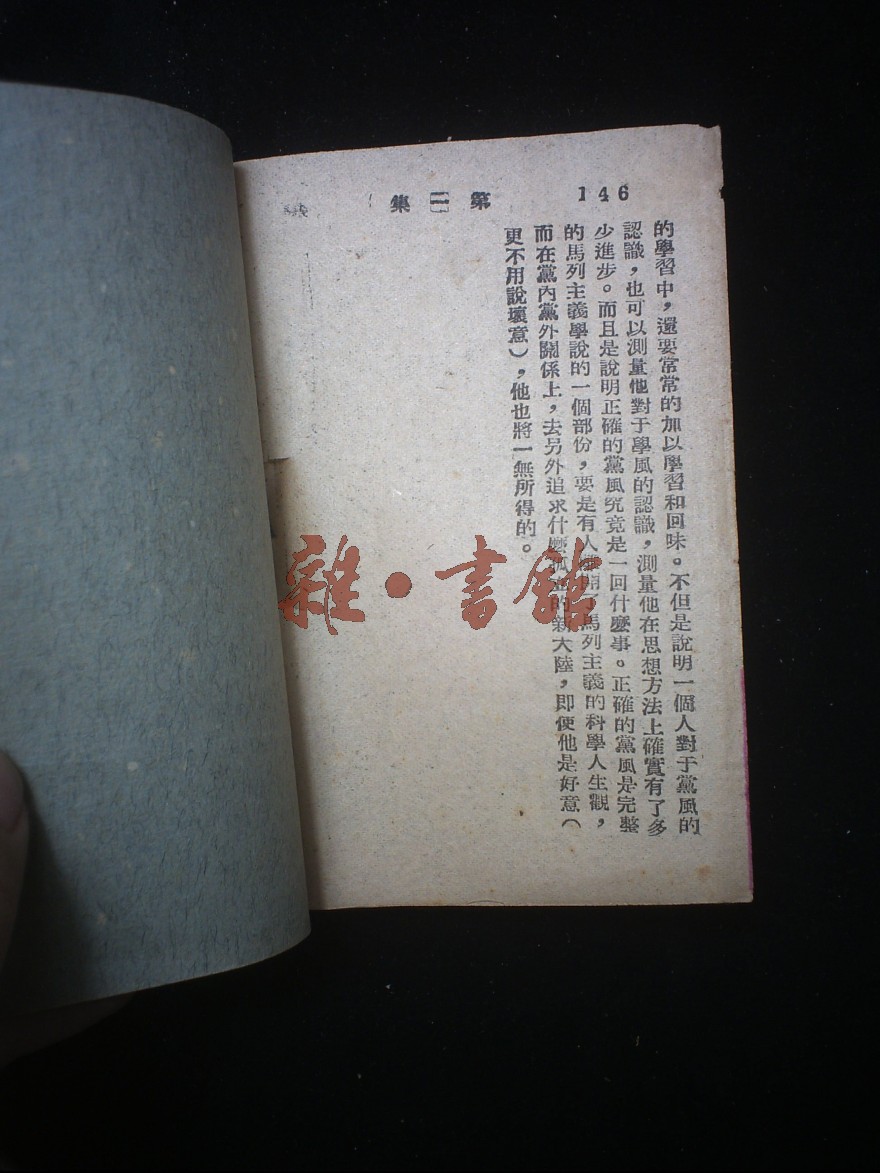 146
第二集
的學習中，還要常常的加以學習和回味。不但是說明一個人對于黨風的
認識，也可以測量他對于學風的認識，測量他在思想方法上確實有了多
少進步。而且是說明正確的黨風究竟是一回什麼事。正確的黨風是完整
的馬列主義學說的一個部份，要是有人離開了馬列主義的科學人生觀，
而在黨內黨外關係上，去另外追求什麼的新大陸，即使他是好意（
更不用說壞意），他也將一無所得的。
雜·書館